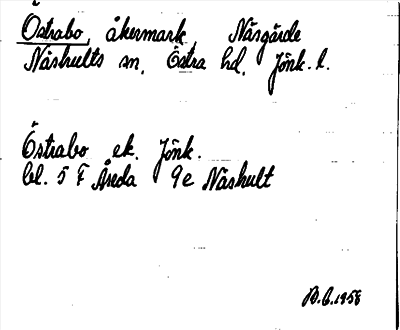 Östrabo, åkermark, Näsgärde
Näshults sn, Östra hd, Jönk. l.
Östrabo ek. Jönk.
bl. 5 F Åseda 9e Näshult
B.B. 1958